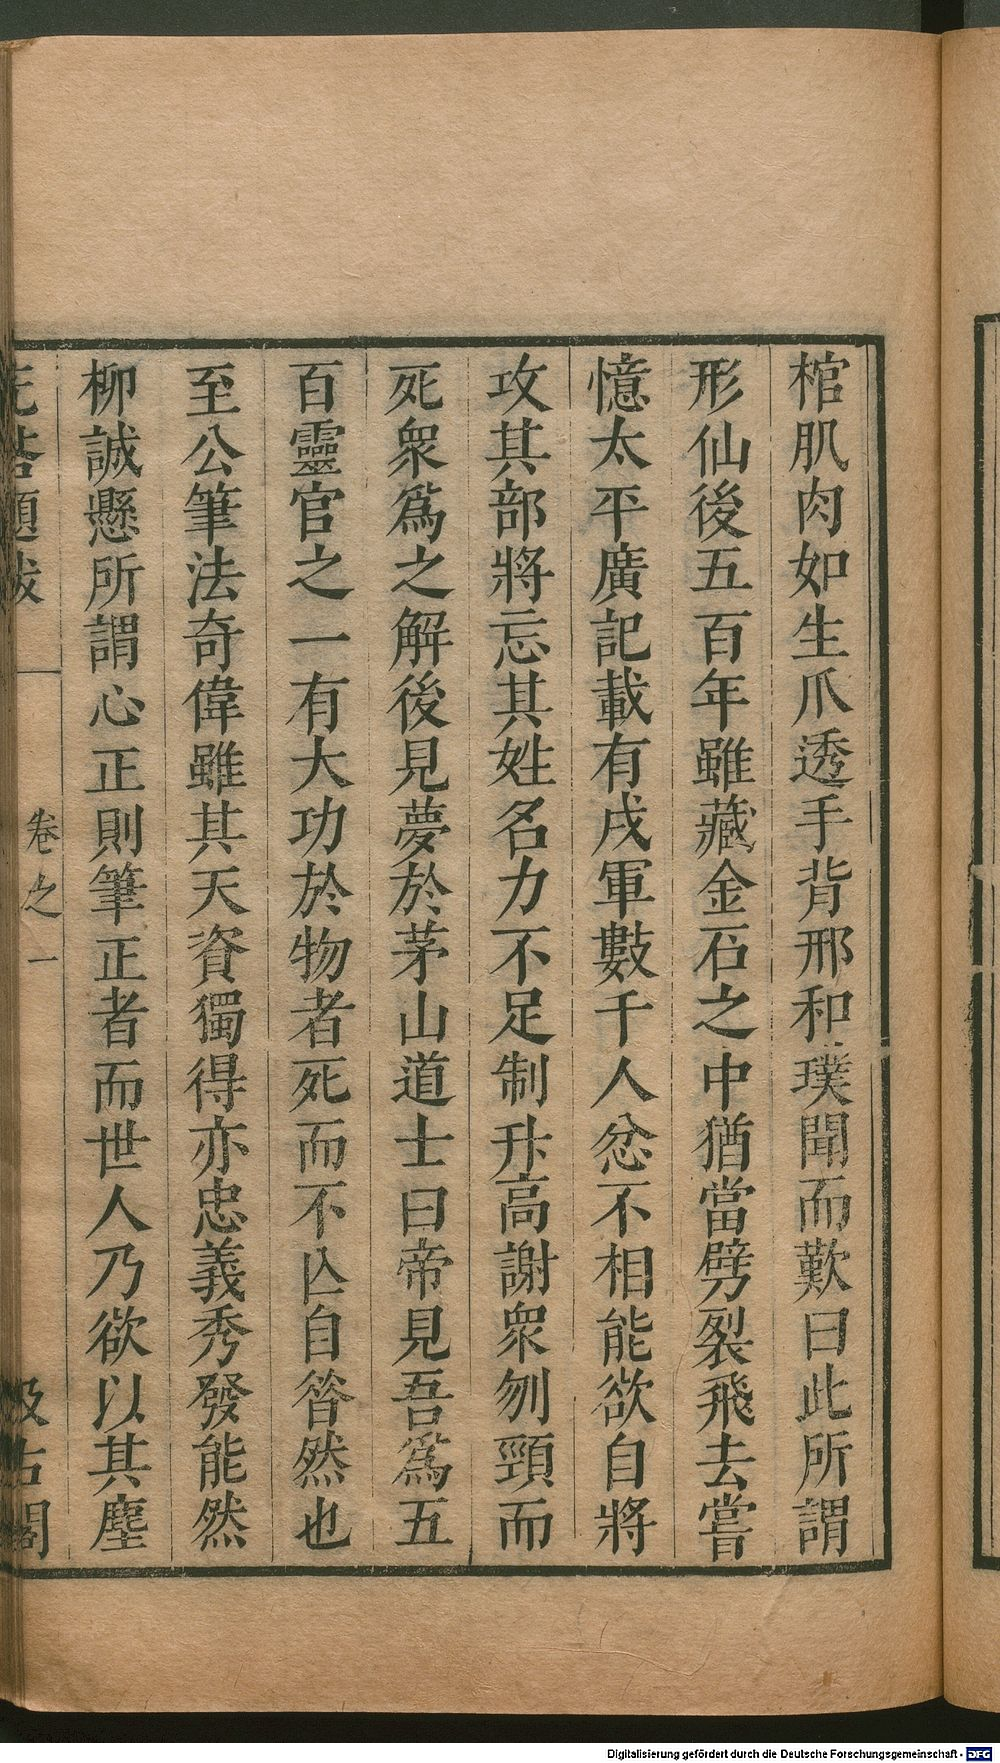 棺肌肉如生爪透手背邢和璞聞而歎曰此所謂
形仙後五百年雖藏金石之中猶當劈裂飛去嘗
憶太平廣記載有戍軍數千人忿不相能欲自將
攻其部將忘其姓名力不足制升高謝衆刎頸而
死衆爲之解後見夢於茅山道士曰帝見吾爲五
百靈官之一有大功於物者死而不亾自昝然也
至公筆法奇偉雖其天資獨得亦忠義秀發能然
柳誠懸所謂心正則筆正者而世人乃欲以其塵
題跋 卷之一 汲古閣
Digitalisierung gefördert durch die Deutsche Forschungsgemeinschaft - DFG